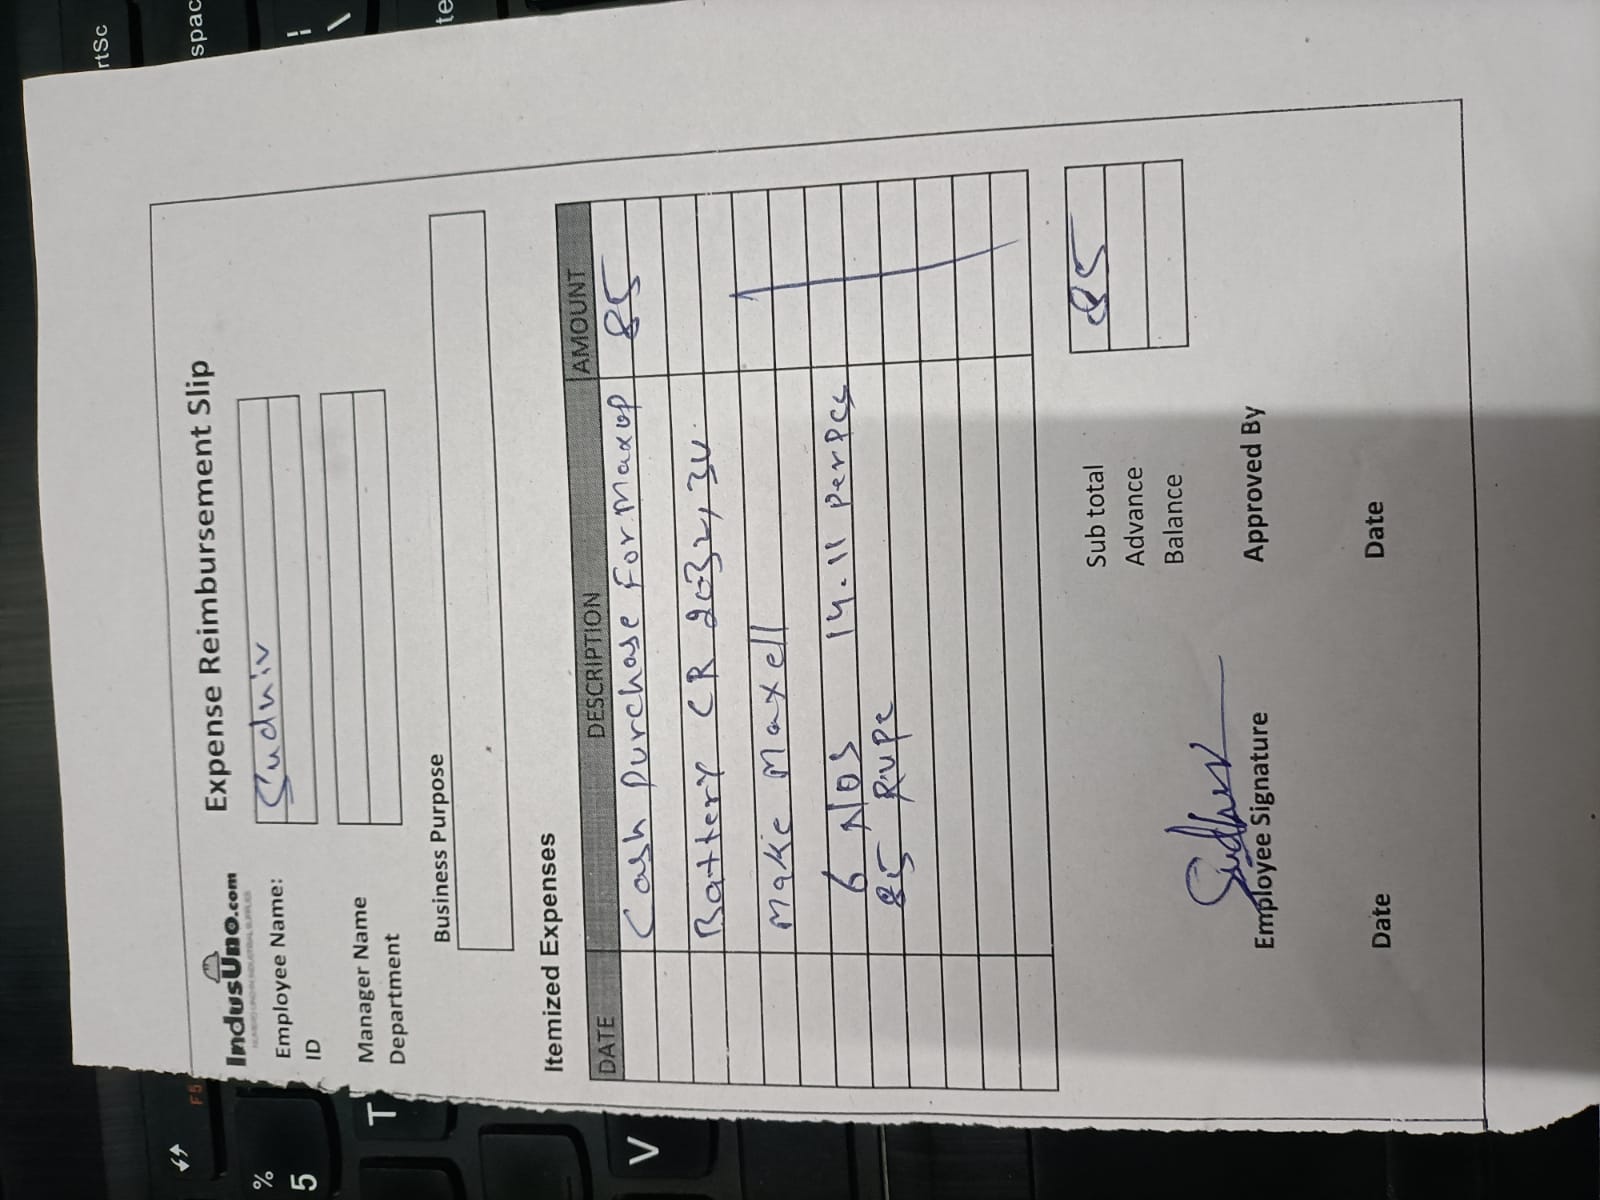 IndusUno.com
Expense Reimbursement Slip
Employee Name: Sudhir
ID
Manager Name
Department
Business Purpose
Itemized Expenses
DATE DESCRIPTION AMOUNT
Cash purchase for Maxop 85
Battery CR 2032, 3V.
Make Maxell
6 Nos 14.11 per Pcs
85 Rupe
Sub total 85
Advance
Balance
Employee Signature Approved By
Date Date
rtSc
spac
!
\
te
F5
%
5
T
V